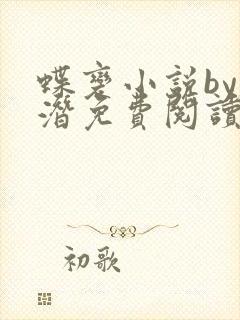 蝶变小说by
潜免费阅读
初歌